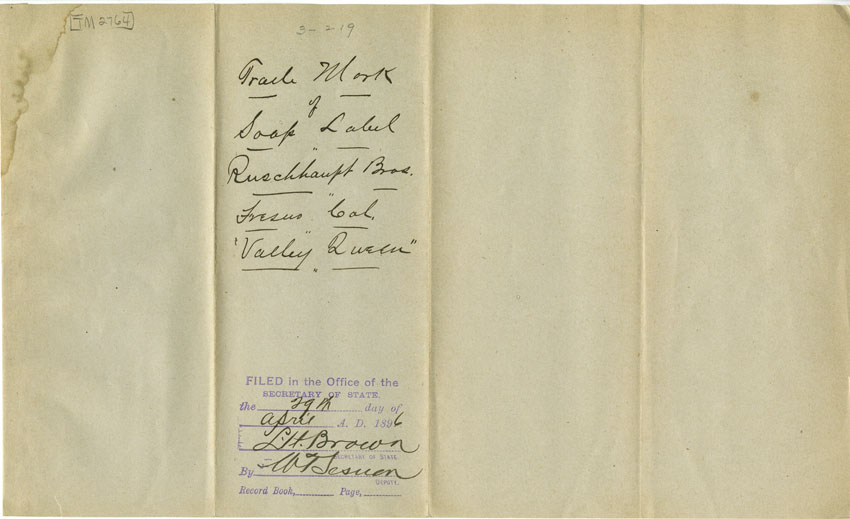 TM 2764
3-2 19
Trade Mark
of
Soap Label
Ruschhaupt Bros.
Fresno Cal.
"Valley Queen"
FILED in the Office of the
SECRETARY OF STATE.
the 29th day of
April A. D. 1896
L.H. Brown
SECRETARY OF STATE.
By
DEPUTY.
Record Book, Page,